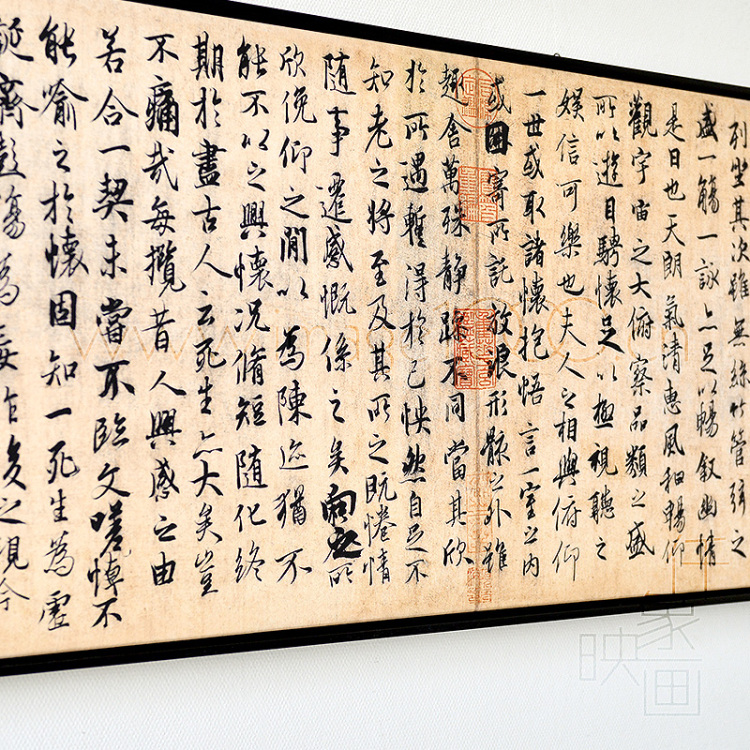 列坐其次雖無絲竹管弦之
盛一觴一詠亦足以暢敘幽情
是日也天朗氣清惠風和暢仰
觀宇宙之大俯察品類之盛
所以遊目騁懷足以極視聽之
娛信可樂也夫人之相與俯仰
一世或取諸懷抱悟言一室之內
或因寄所託放浪形骸之外雖
趣舍萬殊靜躁不同當其欣
於所遇蹔得於己怏然自足不
知老之將至及其所之既惓情
隨事遷感慨係之矣向之所
欣俛仰之閒以為陳迹猶不
能不以之興懷況脩短隨化終
期於盡古人云死生亦大矣豈
不痛哉每攬昔人興感之由
若合一契未嘗不臨文嗟悼不
能喻之於懷固知一死生為虛
誕齊彭殤為妄作後之視今
映象画